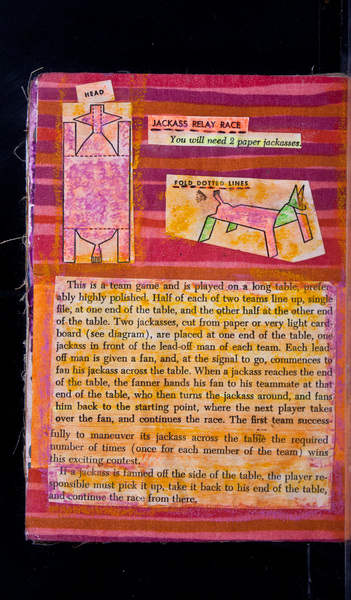 HEAD
JACKASS RELAY RACE
You will need 2 paper jackasses.
FOLD DOTTED LINES
This is a team game and is played on a long table, prefer-
ably highly polished. Half of each of two teams line up, single
file, at one end of the table, and the other half at the other end
of the table. Two jackasses, cut from paper or very light card-
board (see diagram), are placed at one end of the table, one
jackass in front of the lead-off man of each team. Each lead-
off man is given a fan, and, at the signal to go, commences to
fan his jackass across the table. When a jackass reaches the end
of the table, the fanner hands his fan to his teammate at that
end of the table, who then turns the jackass around, and fans
him back to the starting point, where the next player takes
over the fan, and continues the race. The first team success-
fully to maneuver its jackass across the table the required
number of times (once for each member of the team) wins
this exciting contest.
If a jackass is fanned off the side of the table, the player re-
sponsible must pick it up, take it back to his end of the table,
and continue the race from there.